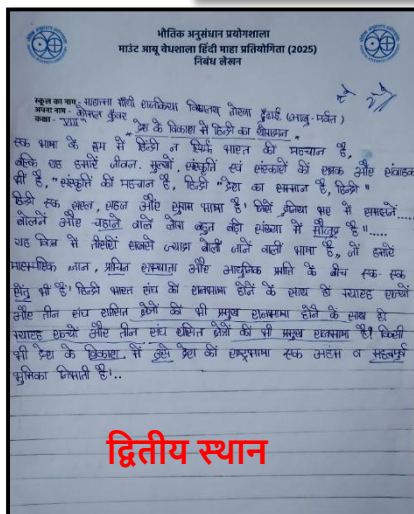 भौतिक अनुसंधान प्रयोगशाला
माउंट आबू वेधशाला हिंदी माहा प्रतियोगिता (2025)
निबंध लेखन
स्कूल का नाम - महात्मा गाँधी राजकिय विद्यालय ढुंढाई (आबु-पर्वत)
अपना नाम - कोमल कुँवर
कक्षा - VIII
"देश के विकाश में हिन्दी का योगदान"
एक भाषा के रूप में हिन्दी न सिर्फ भारत की पहचान है,
बल्कि यह हमारे जीवन, मुल्यो, संस्कृति एवं संस्कारों की और संवाहक
भी है, "संस्कृति की पहचान है, हिन्दी" देश का सम्मान है, हिन्दी"
हिन्दी एक सरल, सहज और सुगम भाषा है' जिसे दुनिया भर में समझने.....
बोलने और चाहने वाले लोग बहुत बड़ी संख्या में मौजूद है".....
यह विश्व में तीसरी सबसे ज्यादा बोली जाने वाली भाषा है, जो हमारे
ज्ञान, प्रचिन सभ्यता और आधुनिक प्रगति के बीच एक-एक
सेतु भी है' हिन्दी भारत संघ की राजभाषा होने के साथ ही ग्यारह राज्यों
और तीन संघ शासित क्षेत्रों की भी प्रमुख राजभाषा होने के साथ ही
ग्यारह राज्यों और तीन संघ शासित क्षेत्रों की भी प्रमुख राजभाषा है! किसी
भी देश के विकाश में उसे देश की राष्ट्रभाषा एक अहम व महत्वपुर्ण
भुमिका निभाती है!..
द्वितीय स्थान